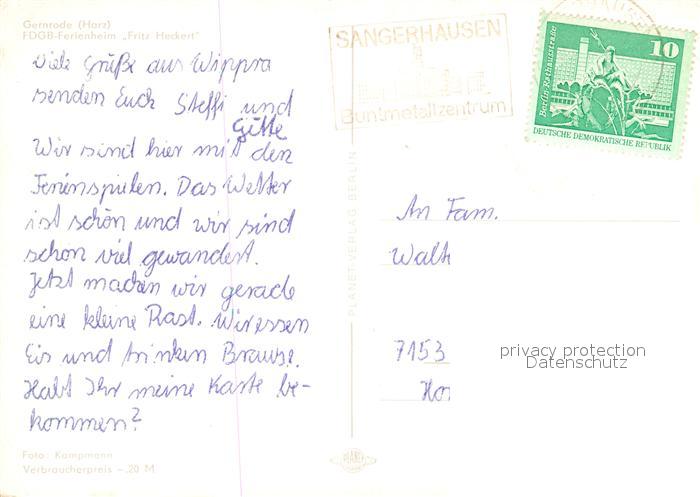 Gernrode (Harz)
FDGB-Ferienheim „Fritz Heckert"
Viele Grüße aus Wippra
senden Euch Steffi und
Gitte
Wir sind hier mit den
Ferienspielen. Das Wetter
ist schön und wir sind
schon viel gewandert.
Jetzt machen wir gerade
eine kleine Rast. Wir essen
Eis und trinken Brause.
Habt Ihr meine Karte be-
kommen?
Foto: Kampmann
Verbraucherpreis -,20 M
PLANET-VERLAG BERLIN
PLANET
SANGERHAUSEN
Buntmetallzentrum
10
Berlin, Rathausstraße
DEUTSCHE DEMOKRATISCHE REPUBLIK
An Fam.
Walt
7153
Ho
privacy protection
Datenschutz